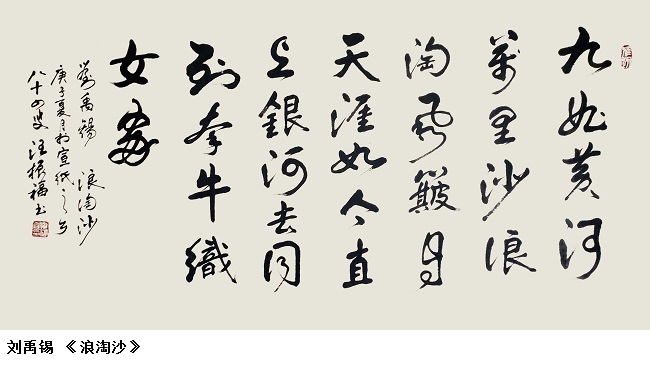 九曲黄河
萬里沙浪
淘風簸自
天涯如今直
上銀河去同
到牵牛織
女家
劉禹錫 浪淘沙
庚子夏月於宣紙之乡
八十四叟 汪振福书
刘禹锡 《浪淘沙》